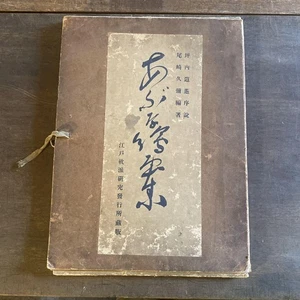 坪內逍遙序說
尾崎久彌編著
あぶな繪集
江戸軟派硏究發行所藏版